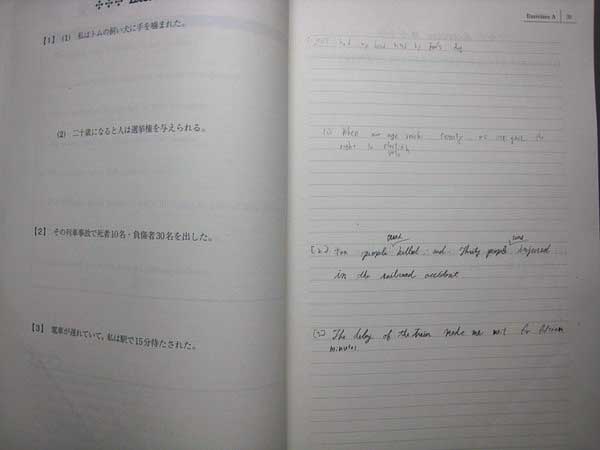 【1】 (1) 私はトムの飼い犬に手を噛まれた。
(2) 二十歳になると人は選挙権を与えられる。
【2】 その列車事故で死者10名・負傷者30名を出した。
【3】 電車が遅れていて，私は駅で15分待たされた。
Exercises A
had my hand by Tom's dog
When age twenty the
right to
were were
[2] Ten people killed and thirty people injured
in the railroad accident.
[3] The delay of the train made me wait for fifteen
minutes.